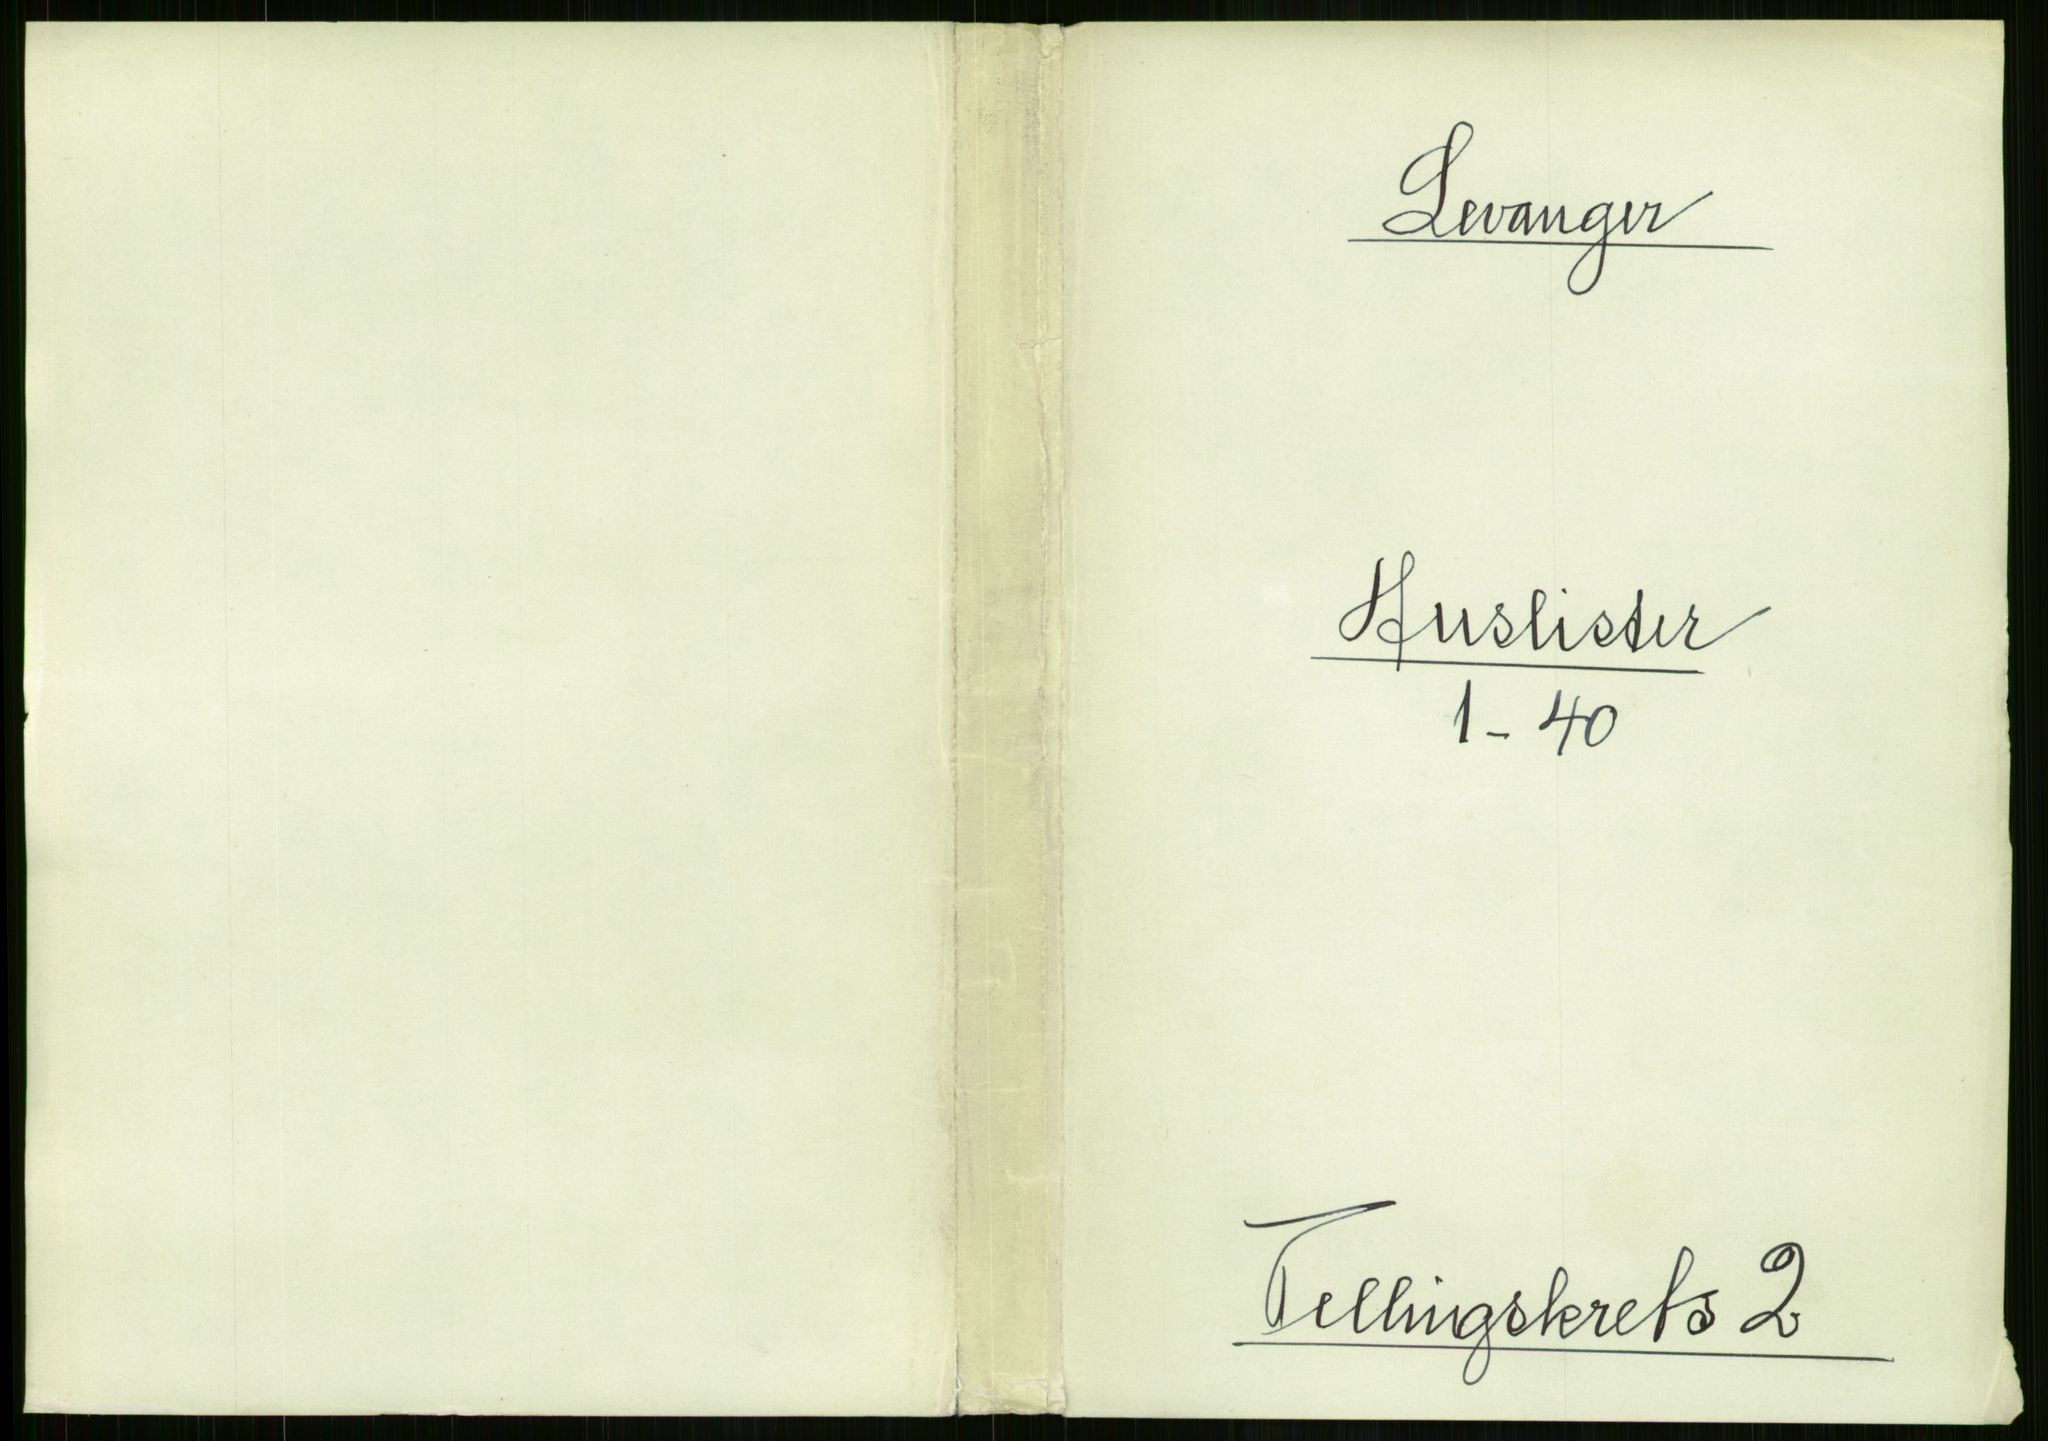 Levanger
Huslister
1-40
Tellingskrets 2